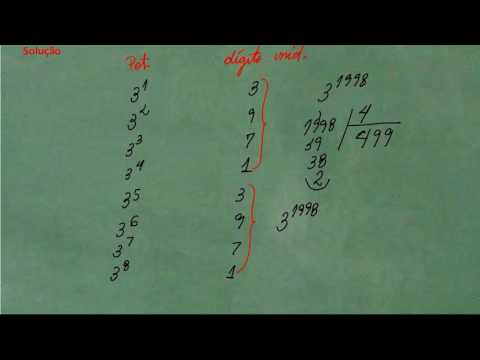 Solução
Pot. dígito unid.
3^1 3
3^2 9
3^3 7
3^4 1
3^5 3
3^6 9
3^7 7
3^8 1
3^1998
1998 | 4
39 499
38
2
3^1998